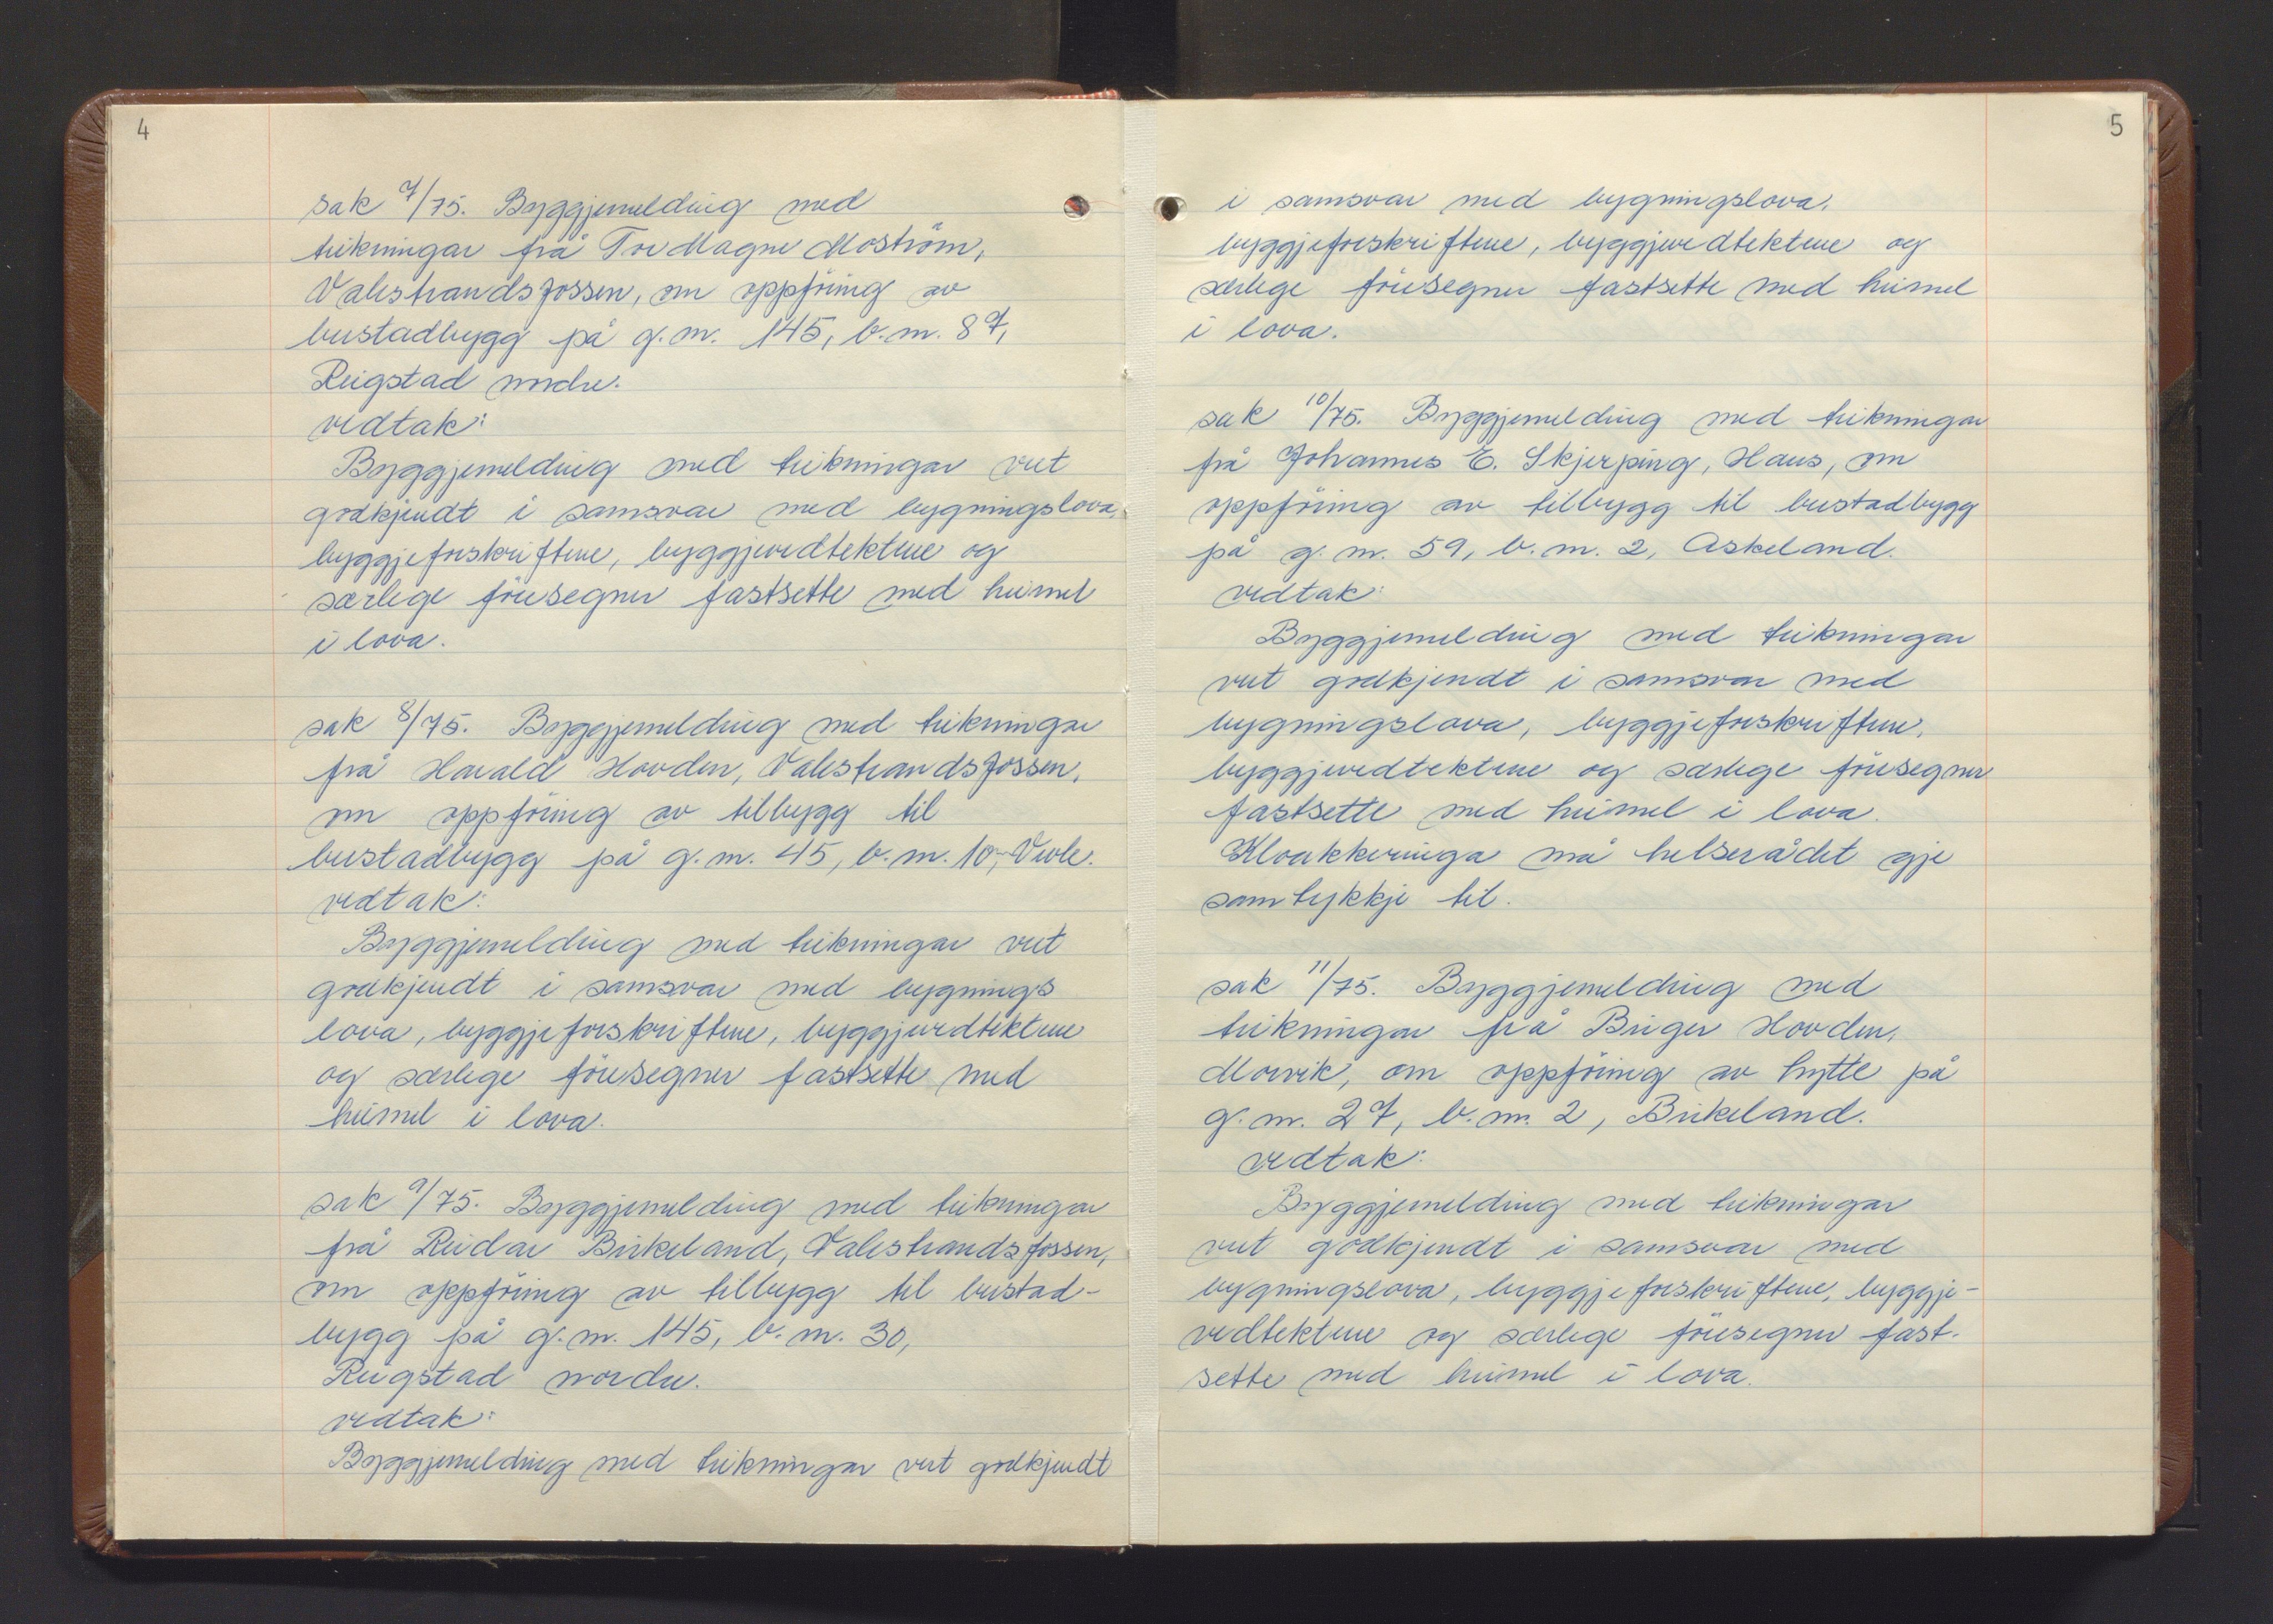 4
sak 7/75. Byggjemelding med
teikningar frå Tor Magne Moström,
Valestrandsfossen, om oppföring av
bustadbygg på g.nr. 145, b.nr. 87,
Reigstad nordre.
vedtak:
Byggjemelding med teikningar vert
godkjendt i samsvar med bygningslova,
byggjeforskriftene, byggjevedtektene og
særlege föresegner fastsette med heimel
i lova.
sak 8/75. Byggjemelding med teikningar
frå Harald Hovden, Valestrandsfossen,
om oppföring av tilbygg til
bustadbygg på g.nr. 45, b.nr. 10, Veole.
vedtak:
Byggjemelding med teikningar vert
godkjendt i samsvar med bygnings
lova, byggjeforskriftene, byggjevedtektene
og særlege föresegner fastsette med
heimel i lova.
sak 9/75. Byggjemelding med teikningar
frå Reidar Birkeland, Valestrandsfossen,
om oppföring av tilbygg til bustad-
bygg på g.nr. 145, b.nr. 30,
Reigstad nordre.
vedtak:
Byggjemelding med teikningar vert godkjendt
5
i samsvar med bygningslova,
byggjeforskriftene, byggjevedtektene og
særlege föresegner fastsette med heimel
i lova.
sak 10/75. Byggjemelding med teikningar
frå Johannes E. Skjerping, Haus, om
oppföring av tilbygg til bustadbygg
på g.nr. 59, b.nr. 2, Askeland.
vedtak:
Byggjemelding med teikningar
vert godkjendt i samsvar med
bygningslova, byggjeforskriftene,
byggjevedtektene og særlege föresegner
fastsette med heimel i lova.
Kloakkeringa må helserådet gje
samtykkje til.
sak 11/75. Byggjemelding med
teikningar frå Birger Hovden,
Morvik, om oppföring av hytte på
g.nr. 27, b.nr. 2, Birkeland.
vedtak:
Byggjemelding med teikningar
vert godkjendt i samsvar med
bygningslova, byggjeforskriftene, byggje-
vedtektene og særlege föresegner fast-
sette med heimel i lova.